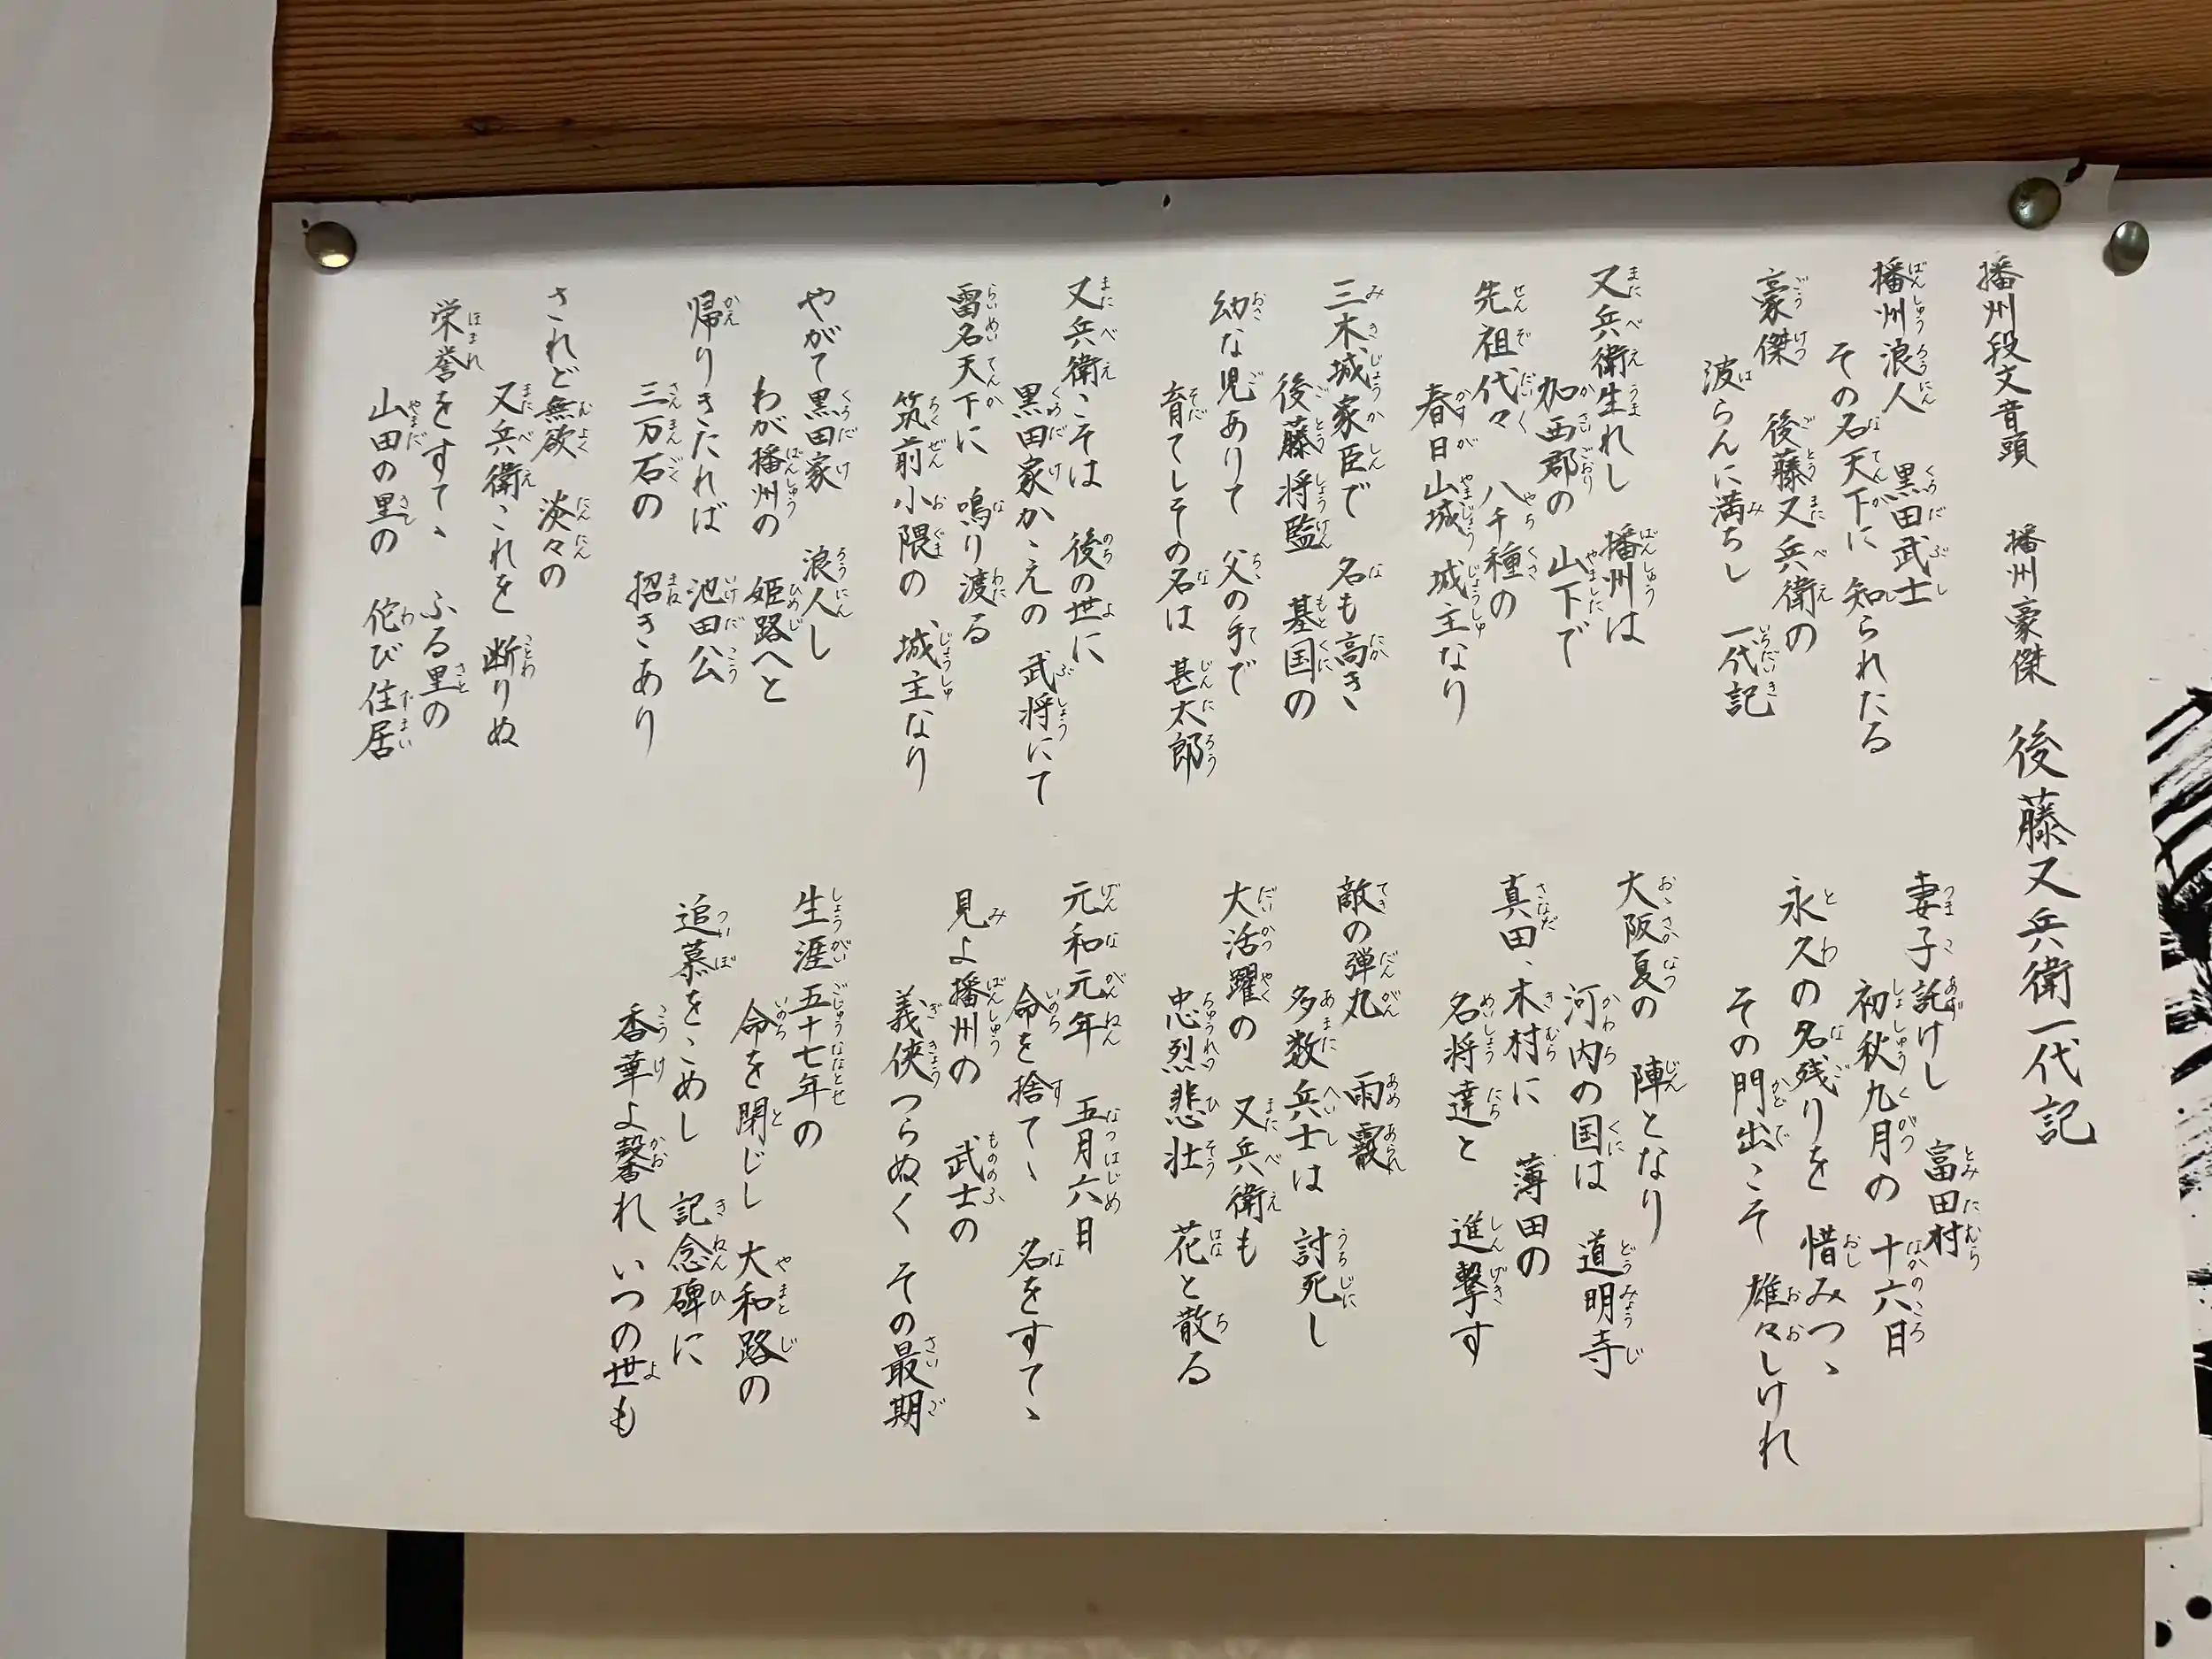 播州段文音頭　播州豪傑　後藤又兵衛一代記
播州浪人　黒田武士
その名天下に　知られたる
豪傑　後藤又兵衛の
波らんに満ちし　一代記
又兵衛生れし　播州は
加西郡の　山下で
先祖代々　八千種の
春日山城　城主なり
三木城家臣で　名も高き
後藤将監　基国の
幼な児ありて　父の手で
育てしその名は　甚太郎
又兵衛こそは　後の世に
黒田家かゝえの　武将にて
雷名天下に　鳴り渡る
筑前小隈の　城主なり
やがて黒田家　浪人し
わが播州の　姫路へと
帰りきたれば　池田公
三万石の　招きあり
されど無欲　淡々の
又兵衛これを　断りぬ
栄誉をすてゝ　ふる里の
山田の里の　侘び住居
妻子託けし　富田村
初秋九月の　十六日
永久の名残りを　惜みつゝ
その門出こそ　雄々しけれ
大阪夏の　陣となり
河内の国は　道明寺
真田、木村に　薄田の
名将達と　進撃す
敵の弾丸　雨霰
多数兵士は　討死し
大活躍の　又兵衛も
忠烈悲壮　花と散る
元和元年　五月六日
命を捨てゝ　名をすてゝ
見よ播州の　武士の
義侠つらぬく　その最期
生涯五十七年の
命を閉じし　大和路の
追慕をこめし　記念碑に
香華よ馨れ　いつの世も